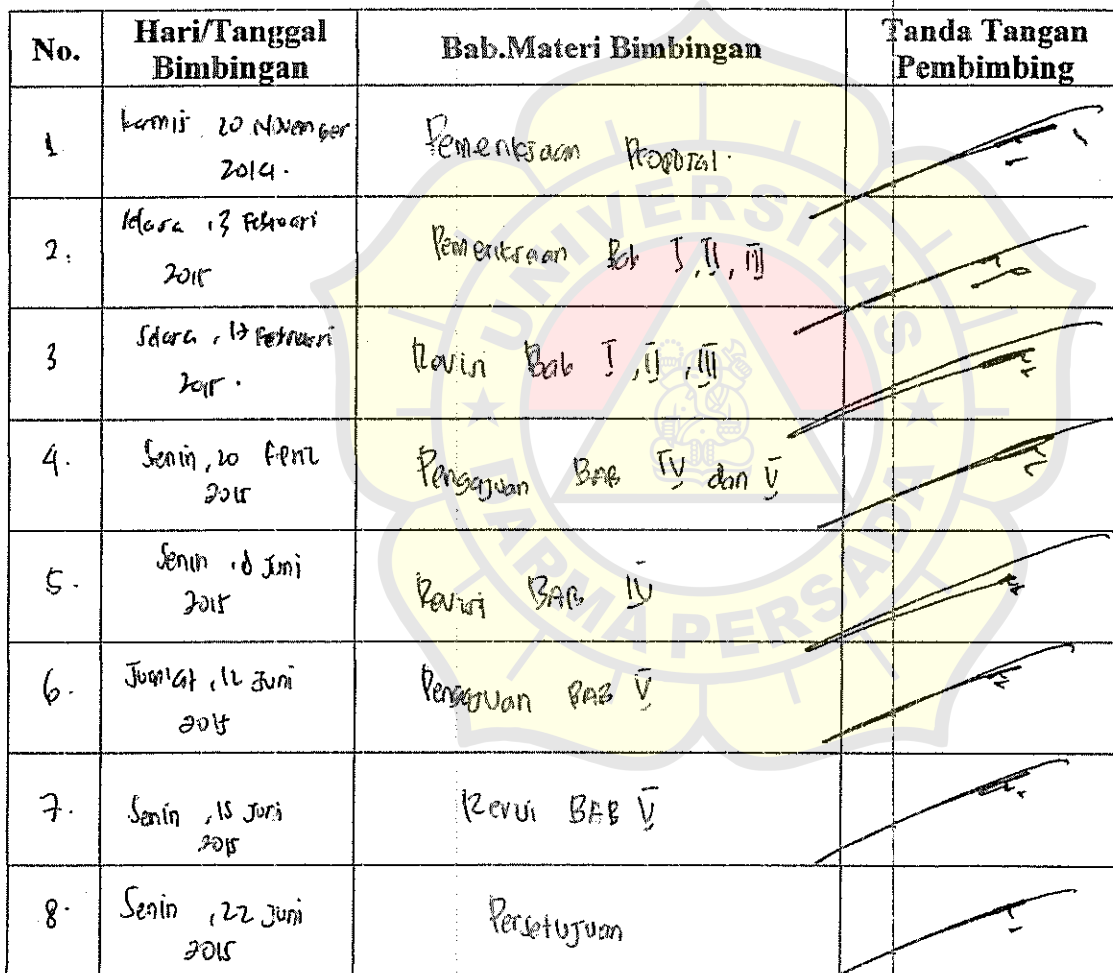 No.
Hari/Tanggal
Bimbingan
Bab.Materi Bimbingan
Tanda Tangan
Pembimbing
1
Kamis, 20 November
2014.
Pemeriksaan Proposal.
2.
Selasa, 3 Februari
2015
Pemeriksaan Bab I, II, III
3
Selasa, 17 Februari
2015.
Revisi Bab I, II, III
4.
Senin, 20
2015
Pengajuan BAB IV dan V
5.
Senin, 8 Juni
2015
Revisi BAB IV
6.
Jum'at, 12 Juni
2015
Pengajuan BAB V
7.
Senin, 15 Juni
2015
Revisi BAB V
8.
Senin, 22 Juni
2015
Persetujuan
UNIVERSITAS
DARMA PERSADA